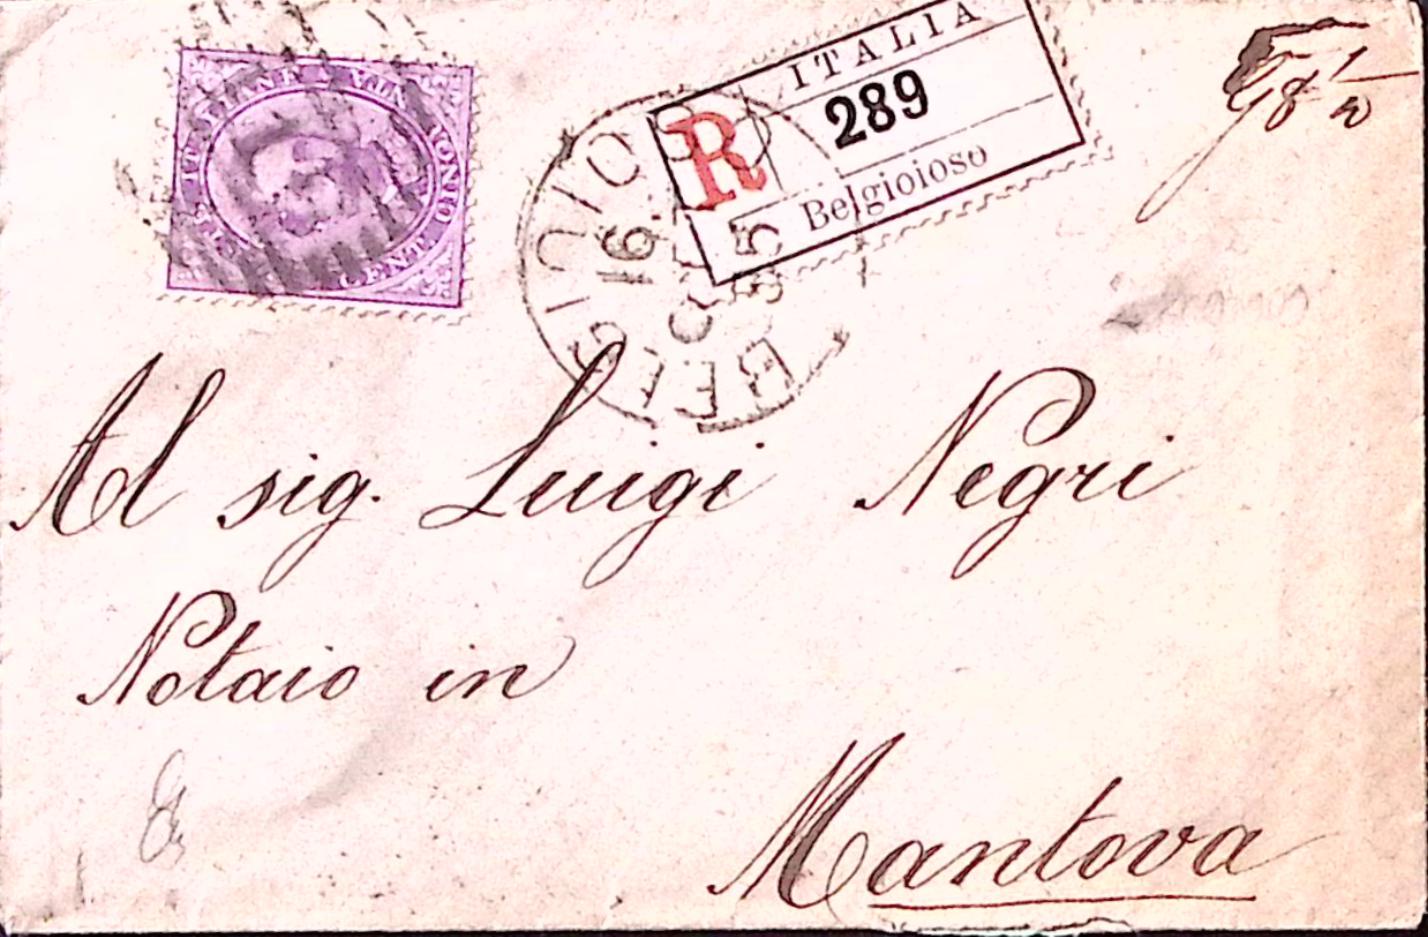 ITALIA
R
289
Belgioioso
BELGIOIOSO
16
95
CENT
Al sig. Luigi Negri
Notaio in
Mantova